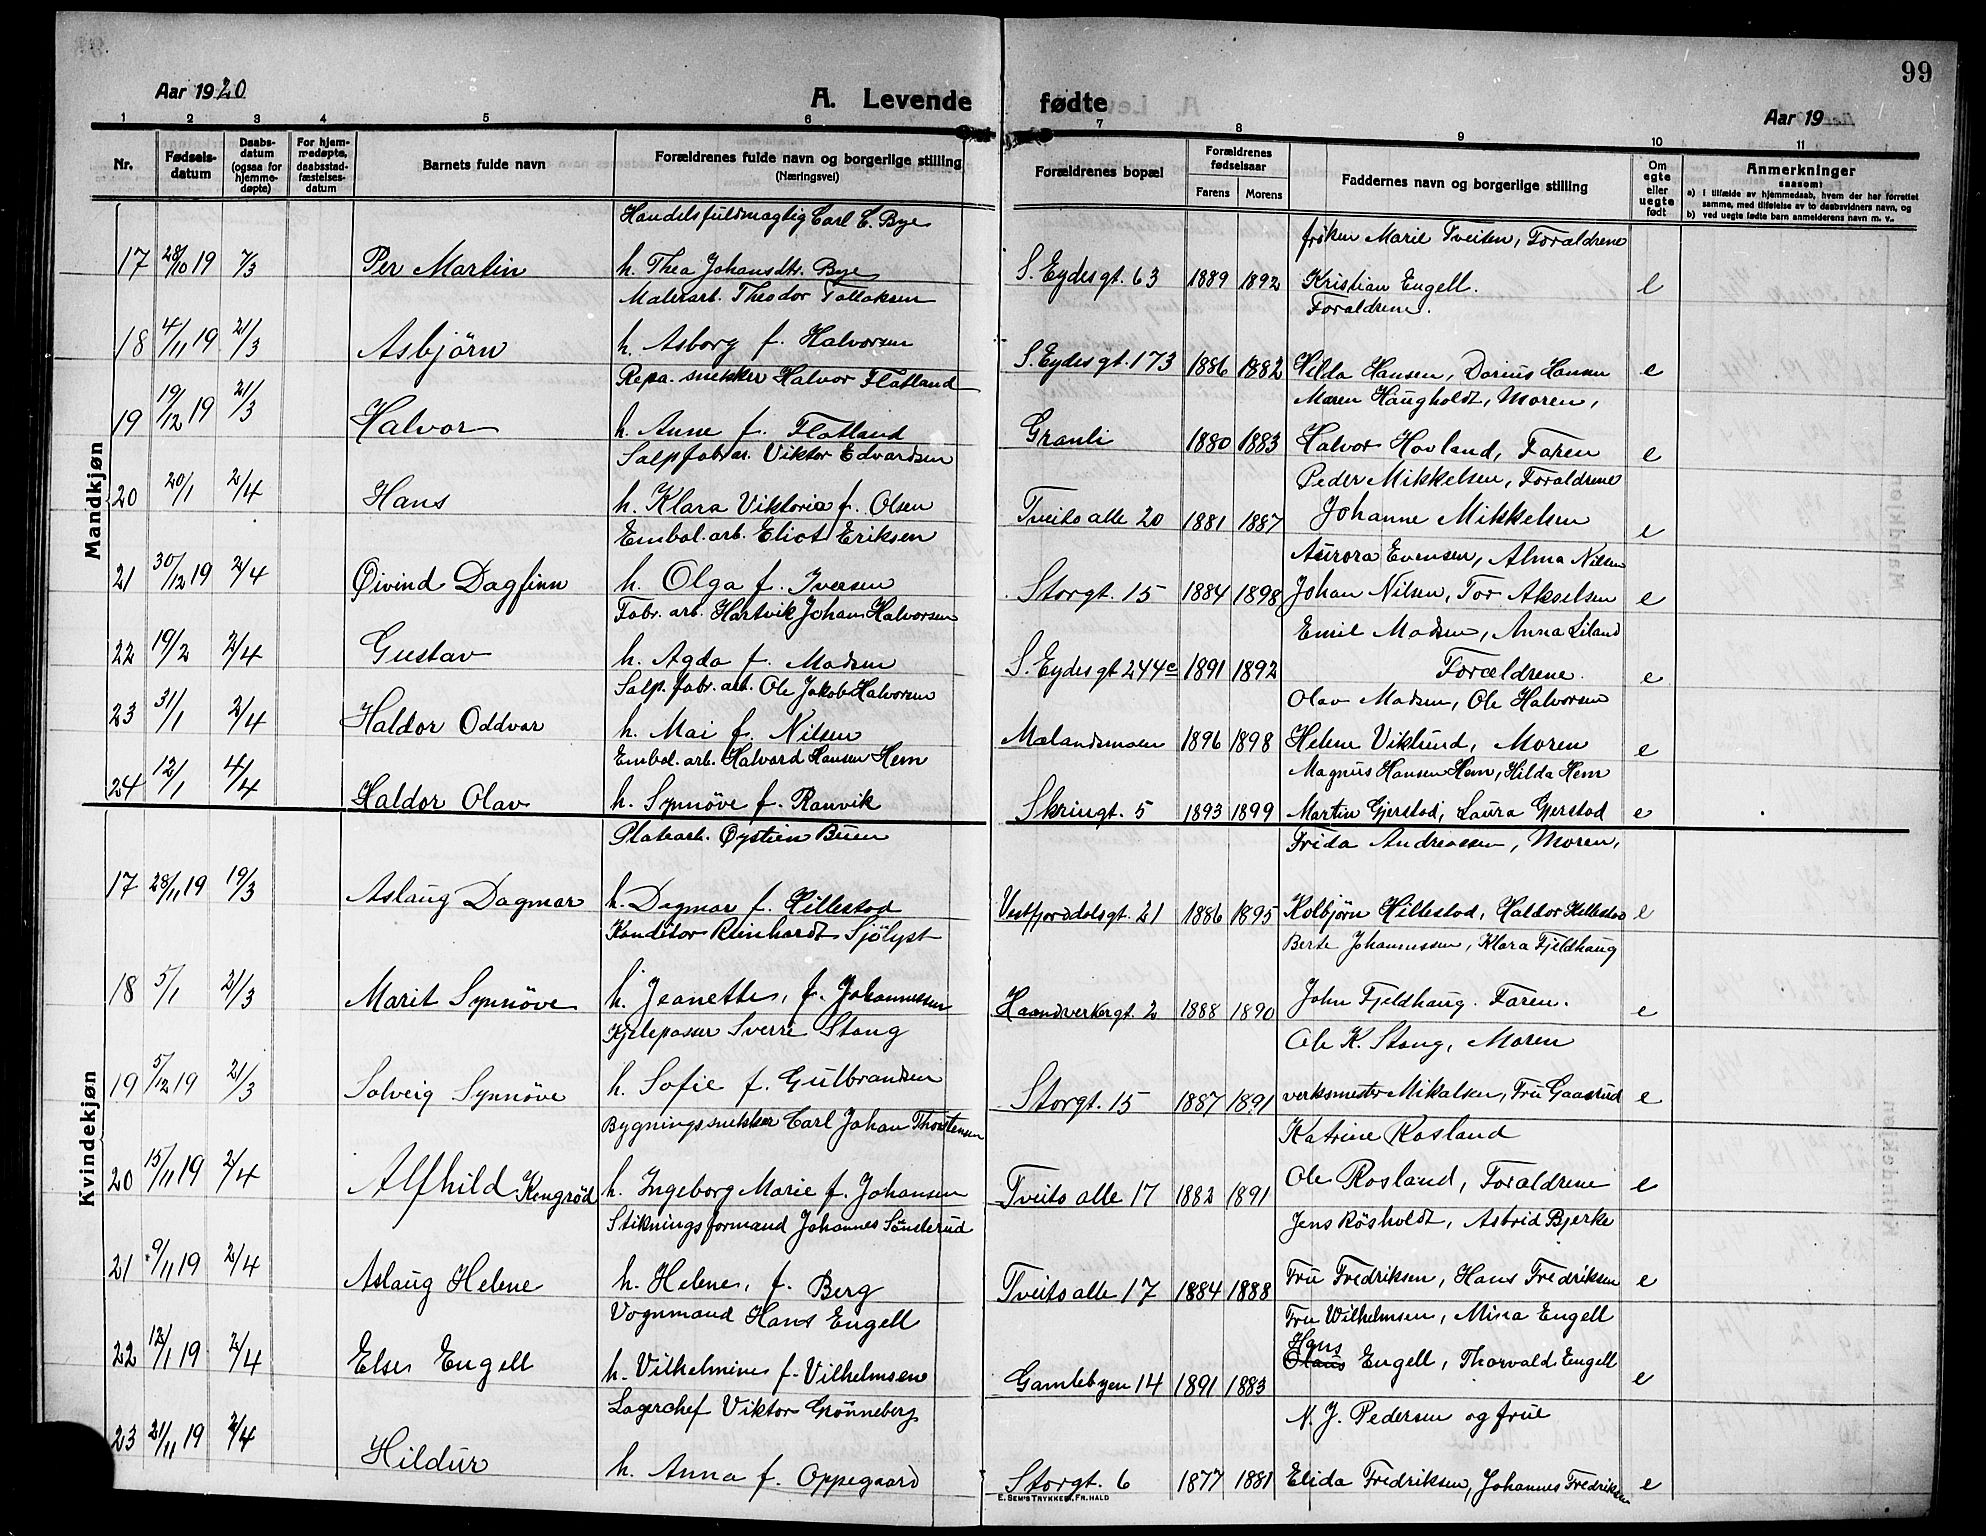 99
Aar 1920
A. Levende fødte
Aar 19
1 2 3 4 5 6 7 8 9 10 11
Nr.
Fødsels-datum
Daabs-datum (ogsaa for hjemme-døpte)
For hjem-medøpte, daabsstad-fæstelses-datum
Barnets fulde navn
Forældrenes fulde navn og borgerlige stilling (Næringsvei)
Forældrenes bopæl
Forældrenes fødselsaar
Farens Morens
Faddernes navn og borgerlige stilling
Om egte eller uegte født
Anmerkninger
saasom:
a) i tilfælde av hjemmedaab, hvem der har forrettet samme, med tilføielse av to daabsvidners navn, og
b) ved uegte fødte barn anmelderens navn m. v.
Mandkjøn
Handelsfuldmægtig Carl E. Bye frøken Marie Tveiten, Forældrene
17 28/10 19 7/3 Per Martin h. Thea Johansdtr. Bye S. Eydes gt. 63 1889 1892 Kristian Engell. e
Malerarb. Theodor Tallaksen Forældrene.
18 4/11 19 21/3 Asbjörn h. Asborg f. Halvorsen S. Eydes gt. 173 1886 1882 Hilda Hansen, Darius Hansen e
Repa. snekker Halvor Flatland Maren Haugholdt, Moren,
19 19/12 19 21/3 Halvor h. Anne f. Flatland Granli 1880 1883 Halvor Hovland, Faren e
Salp. fabr ar. Viktor Edvardsen Peder Mikkelsen, Forældrene
20 20/1 2/4 Hans h. Klara Viktoria f. Olsen Tveits alle 20 1881 1887 Johanne Mikkelsen e
Embal. arb. Eliot Eriksen Aurora Evensen, Alma Nilsen
21 30/12 19 2/4 Øivind Dagfinn h. Olga f. Iversen Storgt. 15 1884 1898 Johan Nilsen, Tor Akselsen e
Fabr. arb. Hartvik Johan Halvorsen Emil Madsen, Anna Liland
22 19/2 2/4 Gustav h. Agda f. Madsen S. Eydes gt 244c 1891 1892 Forældrene. e
Salp. fabr. arb. Ole Jakob Halvorsen Olav Madsen, Ole Halvorsen
23 31/1 2/4 Haldor Oddvar h. Mai f. Nilsen Mælandsmoen 1896 1898 Helene Viklund, Moren e
Embal. arb. Halvard Hansen Hem Magnus Hansen Hem, Hilda Hem
24 12/1 4/4 Haldor Olav h. Synnöve f. Ranvik Skringt. 5 1893 1899 Martin Gjerstad, Laura Gjerstad e
Kvindekjøn
Platearb. Øystein Buen Frida Andreassen, Moren,
17 28/11 19 19/3 Aslaug Dagmar h. Dagmar f. Hillestad Vestfjorddalsgt. 21 1886 1895 Kolbjörn Hillestad, Haldor Hillestad e
Konditor Reinhardt Sjölyst Berte Johannessen, Klara Fjeldhaug
18 5/1 21/3 Marit Synnöve h. Jeanette, f. Johannessen Haandverkergt. 2 1888 1890 John Fjeldhaug. Faren. e
Kjelepasser Sverre Stang Ole K. Stang, Moren
19 5/12 19 21/3 Solveig Synnöve h. Sofie f. Gulbrandsen Storgt. 15 1887 1891 verksmester Mikalsen, Fru Gaasrud e
Bygningssnekker Carl Johan Thorstensen Katrine Rosland
20 15/11 19 2/4 Alfhild Kengröd h. Ingeborg Marie f. Johansen Tveits alle 17 1882 1891 Ole Rosland, Forældrene e
Stikningsformand Johannes Sönderud Jens Røsholdt, Astrid Bjerke
21 9/11 19 2/4 Aslaug Helene h. Helene, f. Berg Tveits alle 17 1884 1888 Fru Fredriksen, Hans Fredriksen e
Vognmand Hans Engell Fru Wilhelmsen, Mina Engell
Hans
22 12/1 19 2/4 Else Engell h. Vilhelmine f. Vilhelmsen Gamlebyen 14 1891 1883 Olaus Engell, Thorvald Engell e
Lagerchef Viktor Grönneberg N. J. Pedersen og frue
23 21/11 19 2/4 Hildur h. Anna f. Oppegaard Storgt. 6 1877 1881 Elida Fredriksen, Johannes Fredriksen e
E. SEM'S TRYKKERI, FR.HALD